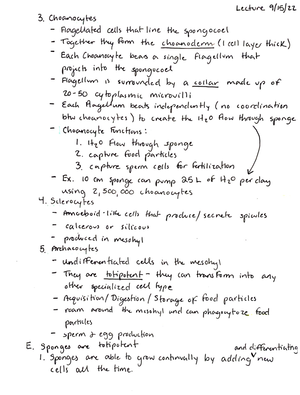 Lecture 9/15/22
3. Choanocytes
- Flagellated cells that line the spongocoel
- Together they form the choanoderm (1 cell layer thick)
- Each Choanocyte bears a single flagellum that
projects into the spongocoel
- Flagellum is surrounded by a collar made up of
20-50 cytoplasmic microvilli
- Each flagellum beats independently (no coordination
btw choanocytes) to create the H2O flow through sponge
- Choanocyte Functions:
1. H2O flow through sponge
2. capture food particles
3. capture sperm cells for fertilization
- Ex. 10 cm sponge can pump 25 L of H2O per day
using 2,500,000 choanocytes
4. Sclerocytes
- Amoeboid-like cells that produce/secrete spicules
- calcerous or silicous
- produced in mesohyl
5. Archaeocytes
- undifferentiated cells in the mesohyl
- They are totipotent - they can transform into any
other specialized cell type
- Acquisition/Digestion/Storage of food particles
- roam around the mesohyl und can phagocytoze food
particles
- sperm & egg production
E. Sponges are totipotent
and differentiating
1. Sponges are able to grow continually by adding new
cells all the time.